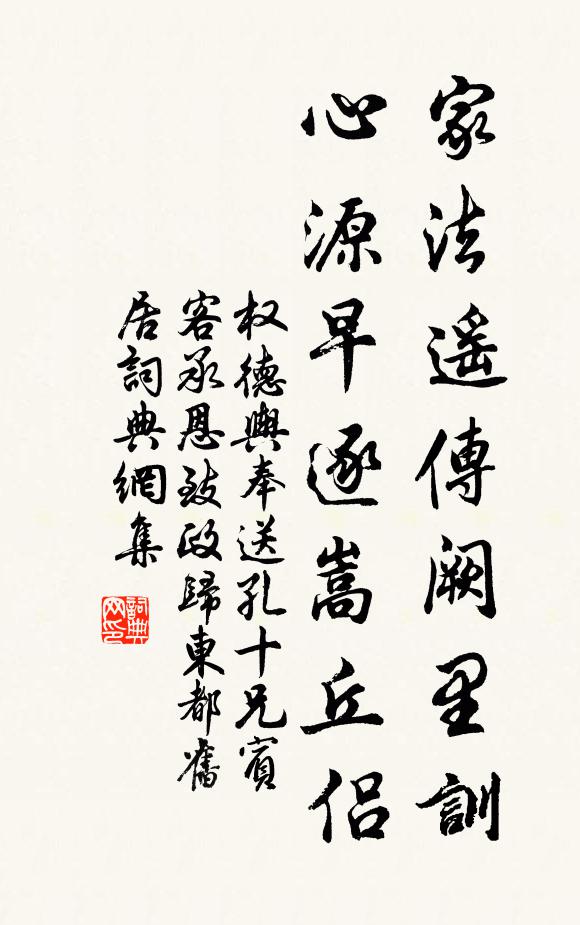 家法遥傳阙里訓
心源早逐嵩丘侣
权德輿奉送孔十兄賓
客承恩致政歸東都舊
居詞典網集
詞典
网印